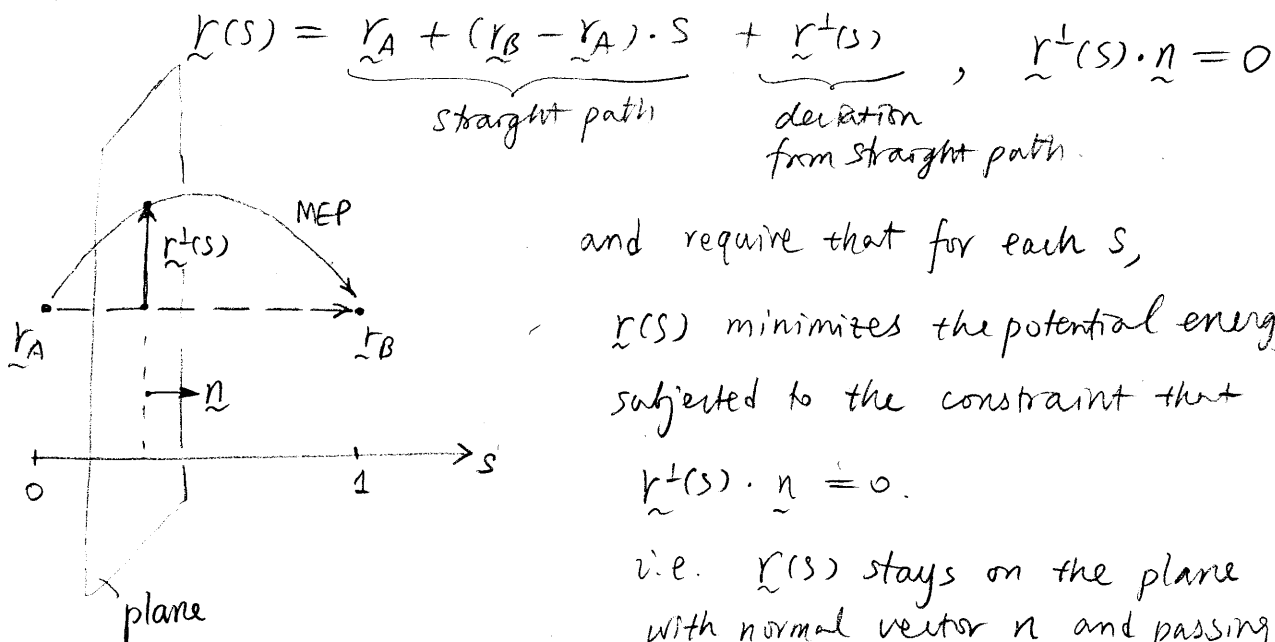 r(s) = r_A + (r_B − r_A) · s + r^⊥(s) , r^⊥(s) · n = 0
straight path
deviation
from straight path.
MEP
r^⊥(s)
r_A
r_B
n
0
1
s
plane
and require that for each s,
r(s) minimizes the potential energ
subjected to the constraint that
r^⊥(s) · n = 0.
i.e. r(s) stays on the plane
with normal vector n and passing